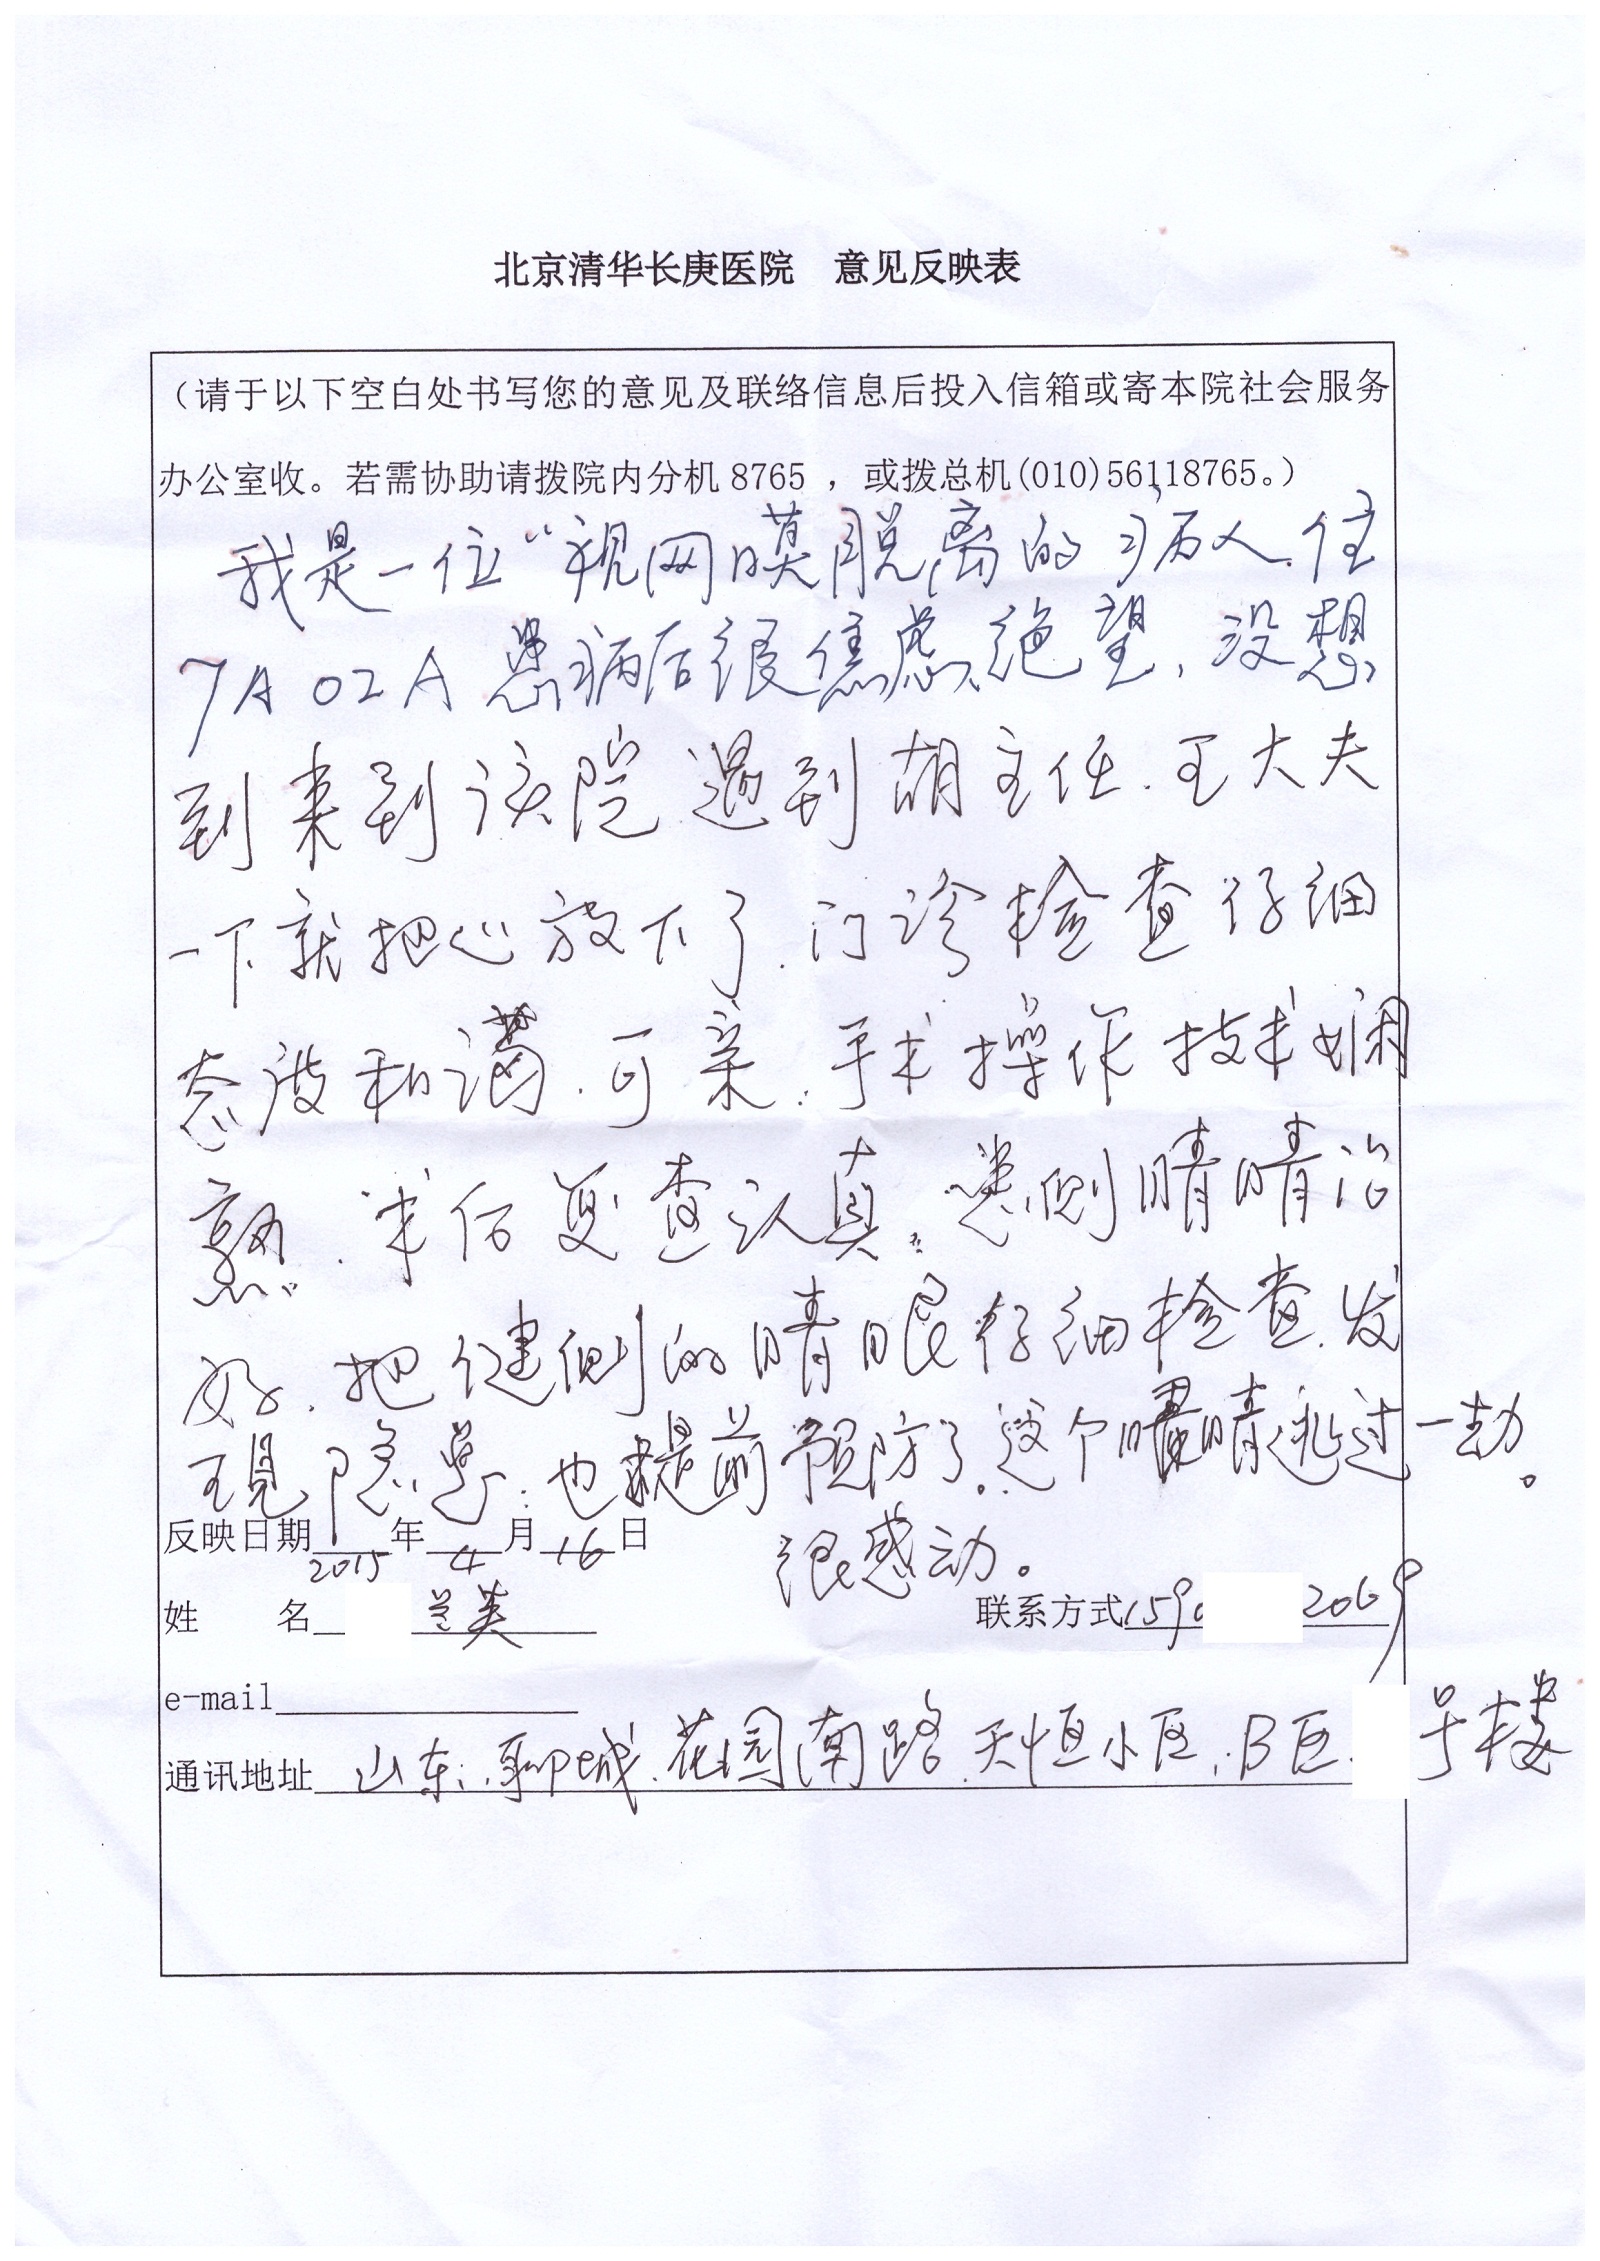 北京清华长庚医院　意见反映表
（请于以下空白处书写您的意见及联络信息后投入信箱或寄本院社会服务
办公室收。若需协助请拨院内分机 8765 ，或拨总机(010)56118765。）
我是一位“视网膜脱离的病人.住
7A02A 患病后很焦虑、绝望、没想
到来到该院遇到胡主任.王大夫
一下就把心放下了.门诊检查仔细
态度和蔼.可亲.手术操作技术娴
熟.术后复查认真。患侧睛睛治
好.把健侧的睛眼仔细检查.发
现隐患.也提前预防了.这个睛逃过一劫。
很感动。
反映日期 2015 年 4 月 16 日
姓　　名 兰英　联系方式 159 2069
e-mail
通讯地址 山东.聊城.花园南路.天恒小区.B区. 号楼